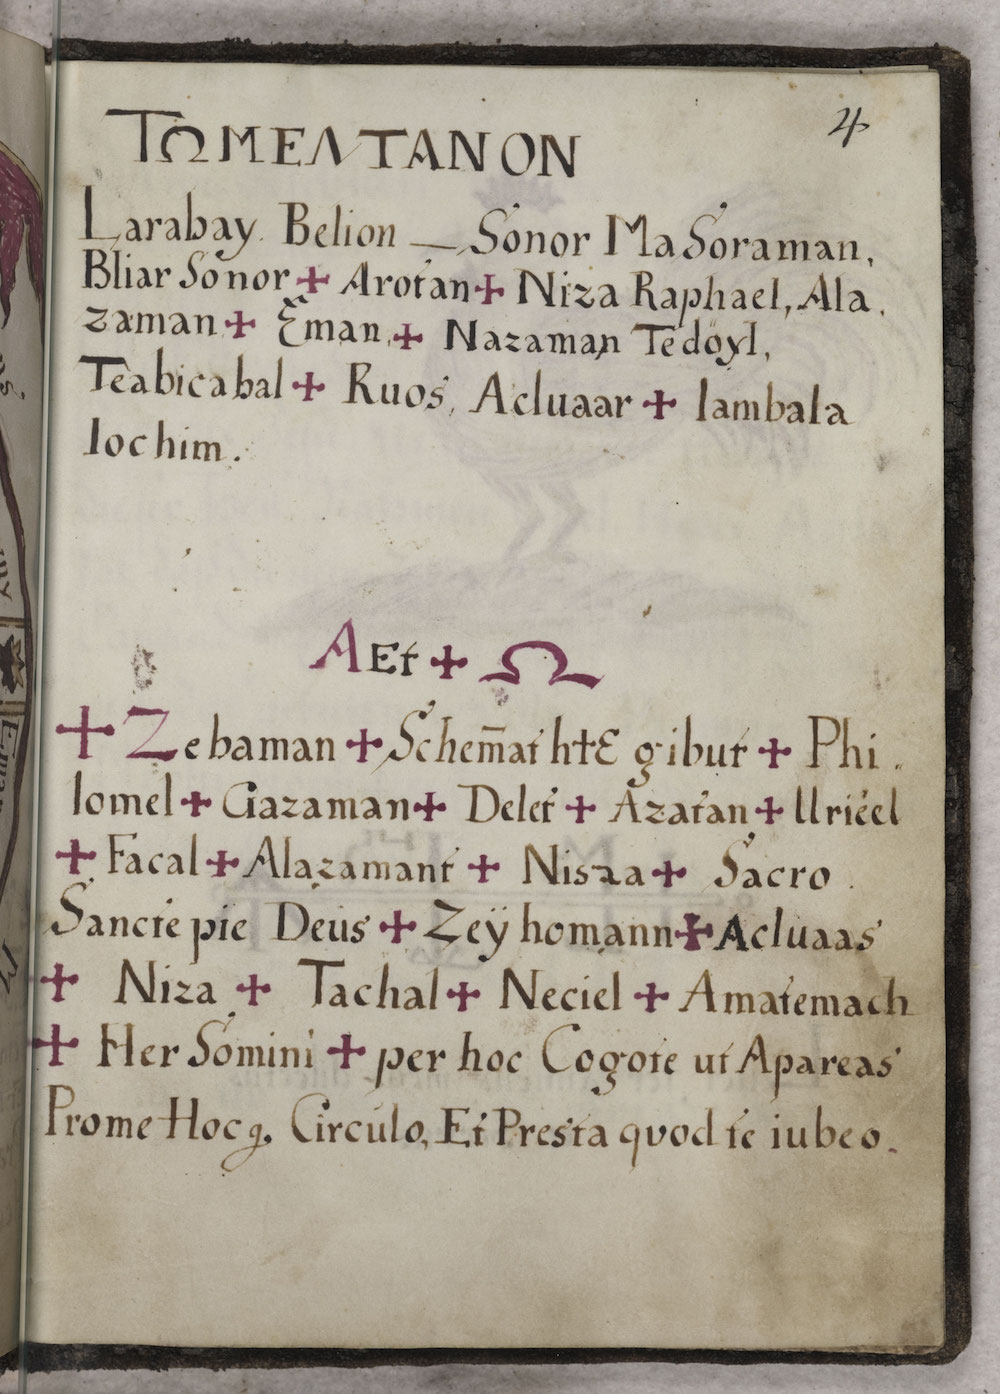 4
ΤΩΜΕΛΤΑΝΟΝ
Larabay. Belion — Sonor Ma Soraman,
Bliar Sonor + Arotan + Niza Raphael, Ala.
zaman + Eman, + Nazaman Tedoÿl,
Teabicabal + Ruos, Acluaar + Iambala
Iochim.
A Et + Ω
+ Zebaman + Schem̄at htE gibut + Phi.
lomel + Gazaman + Delet + Azatan + Urieel
+ Facal + Alazamant + Niszaa + Sacro.
Sancte pie Deus + Zeÿ homann + Acluaas
+ Niza + Tachal + Neciel + Amatemach
+ Her Somini + per hoc Cogote ut Apareas
Prome Hocq. Circulo, Et Presta qvod te iubeo.